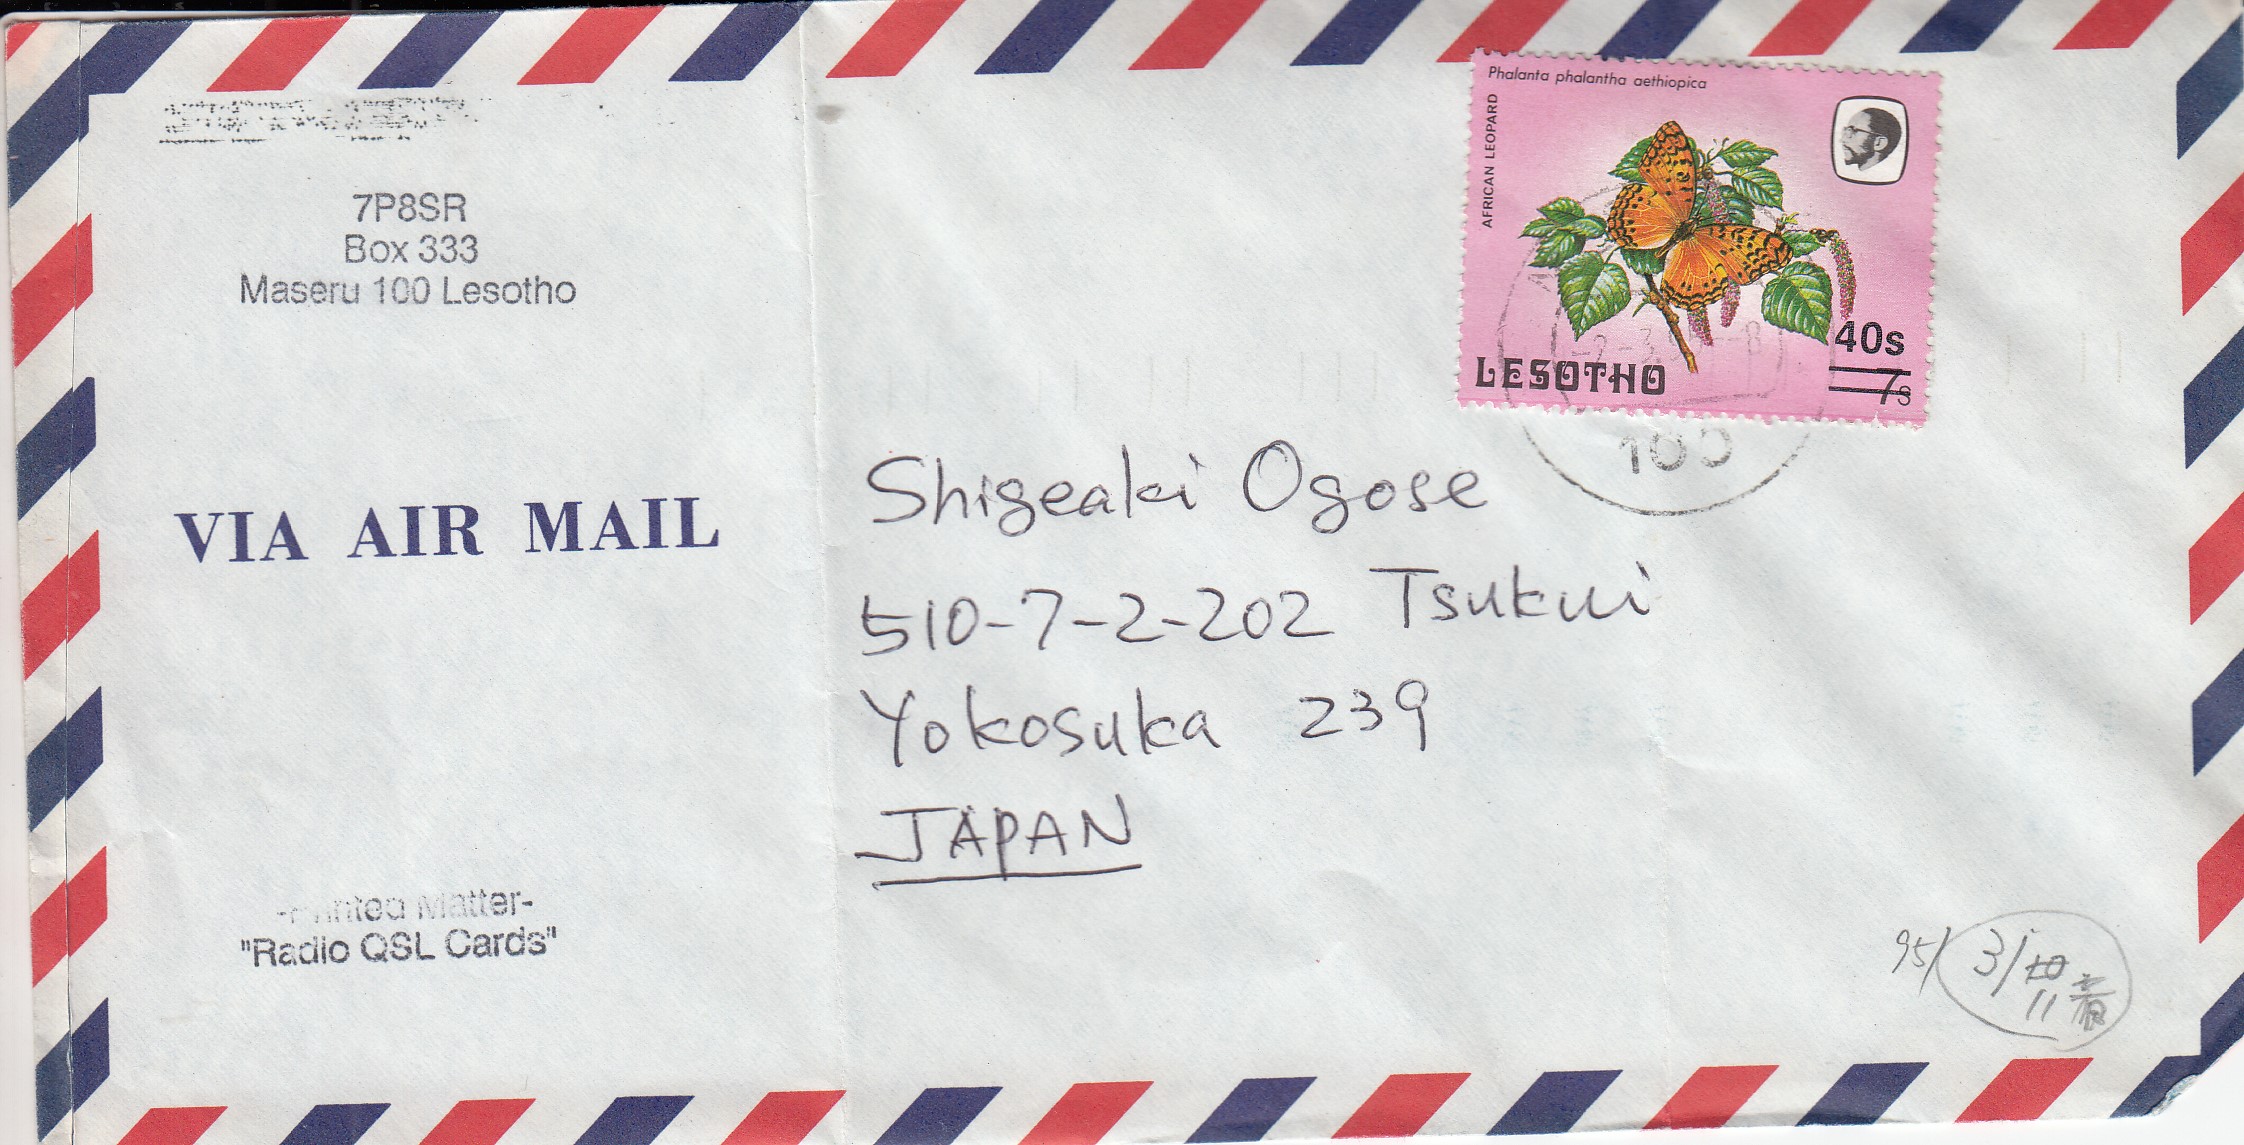 7P8SR
Box 333
Maseru 100 Lesotho
Phalanta phalantha aethiopica
AFRICAN LEOPARD
40s
7s
LESOTHO
100
VIA AIR MAIL
Shigeaki Ogose
510-7-2-202 Tsukui
Yokosuka 239
JAPAN
-Printed Matter-
"Radio QSL Cards"
95/ 3/10
11 着